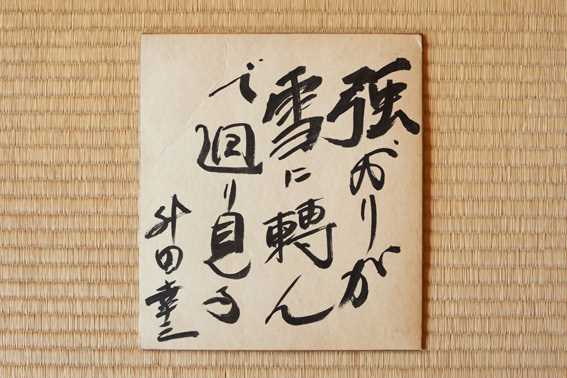 強がりが
雪に轉ん
で廻り見る
升田幸三